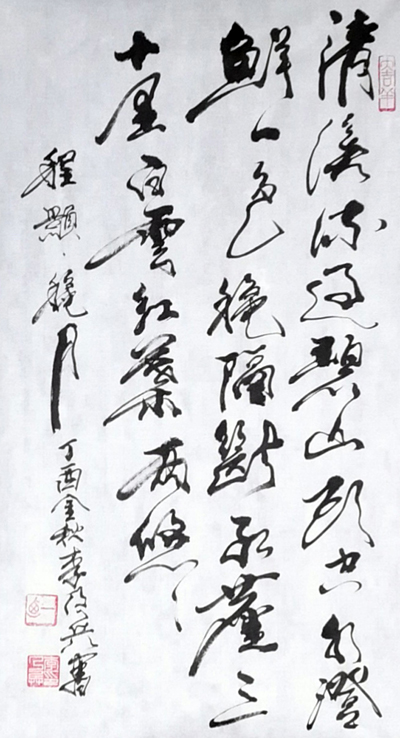 清溪流過碧山頭空水澄
鮮一色穐隔斷紅塵三
十里白雲紅葉兩悠〻
程顥、穐月
丁酉金秋李 書